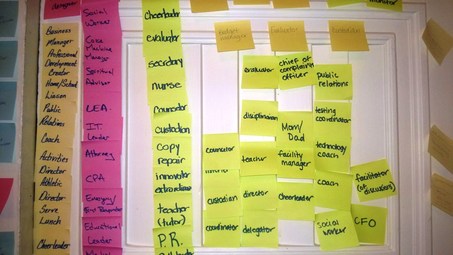 designer
Business
Manager
Professional
Development
Creator
Home/School
Liason
Public
Relations
Coach
Activities
Director
Athletic
Director
Serve
Lunch
Cheerleader
Social
Worker
Case
Manager
Spiritual
Advisor
LEA
I.T.
Leader
Attorney
CPA
Emergency/
Educational
Leader
Cheerleader
evaluator
secretary
nurse
Councilor
custodian
copy
repair
innovator
extraordinaire
teacher
(tutor)
P.R.
evaluator
chief of
complaints
officer
public
relations
disciplinarian
testing
coordinator
Mom/
Dad
councilor
teacher
facility
manager
technology
coach
coach
facilitator
(of
discussions)
custodian
director
cheerleader
coordinator
delegator
social
worker
CFO